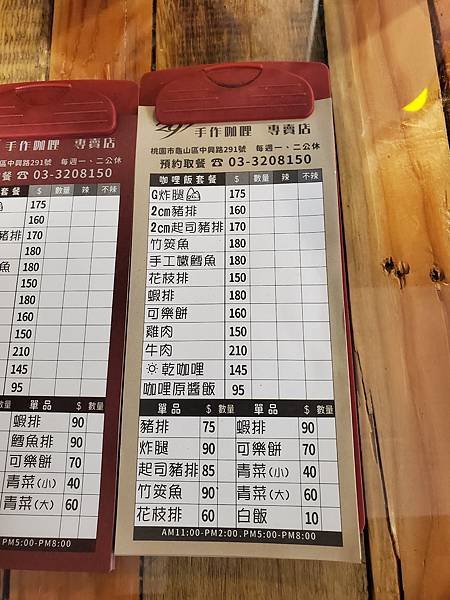 手作咖哩 專賣店
區中興路291號 每週一、二公休
餐 ☎ 03-3208150
套餐 $ 數量 辣 不辣
175
160
豬排 170
180
魚 180
150
180
160
150
210
145
95
數量 單品 $ 數量
蝦排 90
鱈魚排 90
可樂餅 70
青菜(小) 40
青菜(大) 60
PM5:00-PM8:00
手作咖哩 專賣店
桃園市龜山區中興路291號 每週一、二公休
預約取餐 ☎ 03-3208150
咖哩飯套餐 $ 數量 辣 不辣
G炸腿 175
2cm豬排 160
2cm起司豬排 170
竹筴魚 180
手工嫩鱈魚 180
花枝排 150
蝦排 180
可樂餅 160
雞肉 150
牛肉 210
乾咖哩 145
咖哩原醬飯 95
單品 $ 數量 單品 $ 數量
豬排 75 蝦排 90
炸腿 90 可樂餅 70
起司豬排 85 青菜(小) 40
竹筴魚 90 青菜(大) 60
花枝排 60 白飯 10
AM11:00-PM2:00.PM5:00-PM8:00